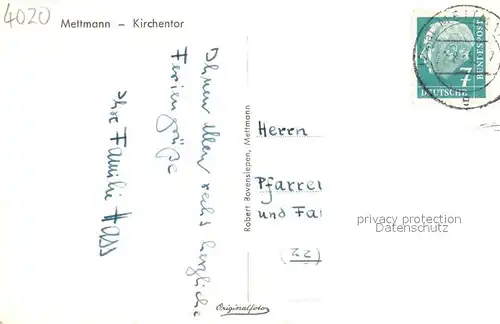 4020
Mettmann – Kirchentor
Ihnen allen recht herzliche
Feriengrüße
Ihre Familie Hass
Robert Bovensiepen, Mettmann
Originalfoto
7
DEUTSCHE
BUNDESPOST
Herrn
Pfarrer
und Fa
(22
privacy protection
Datenschutz